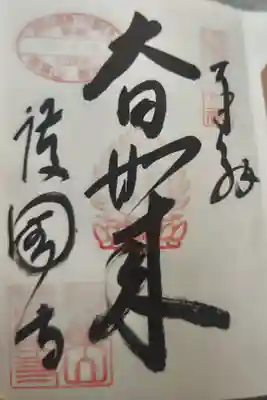 奉拝
大日如来
護國寺